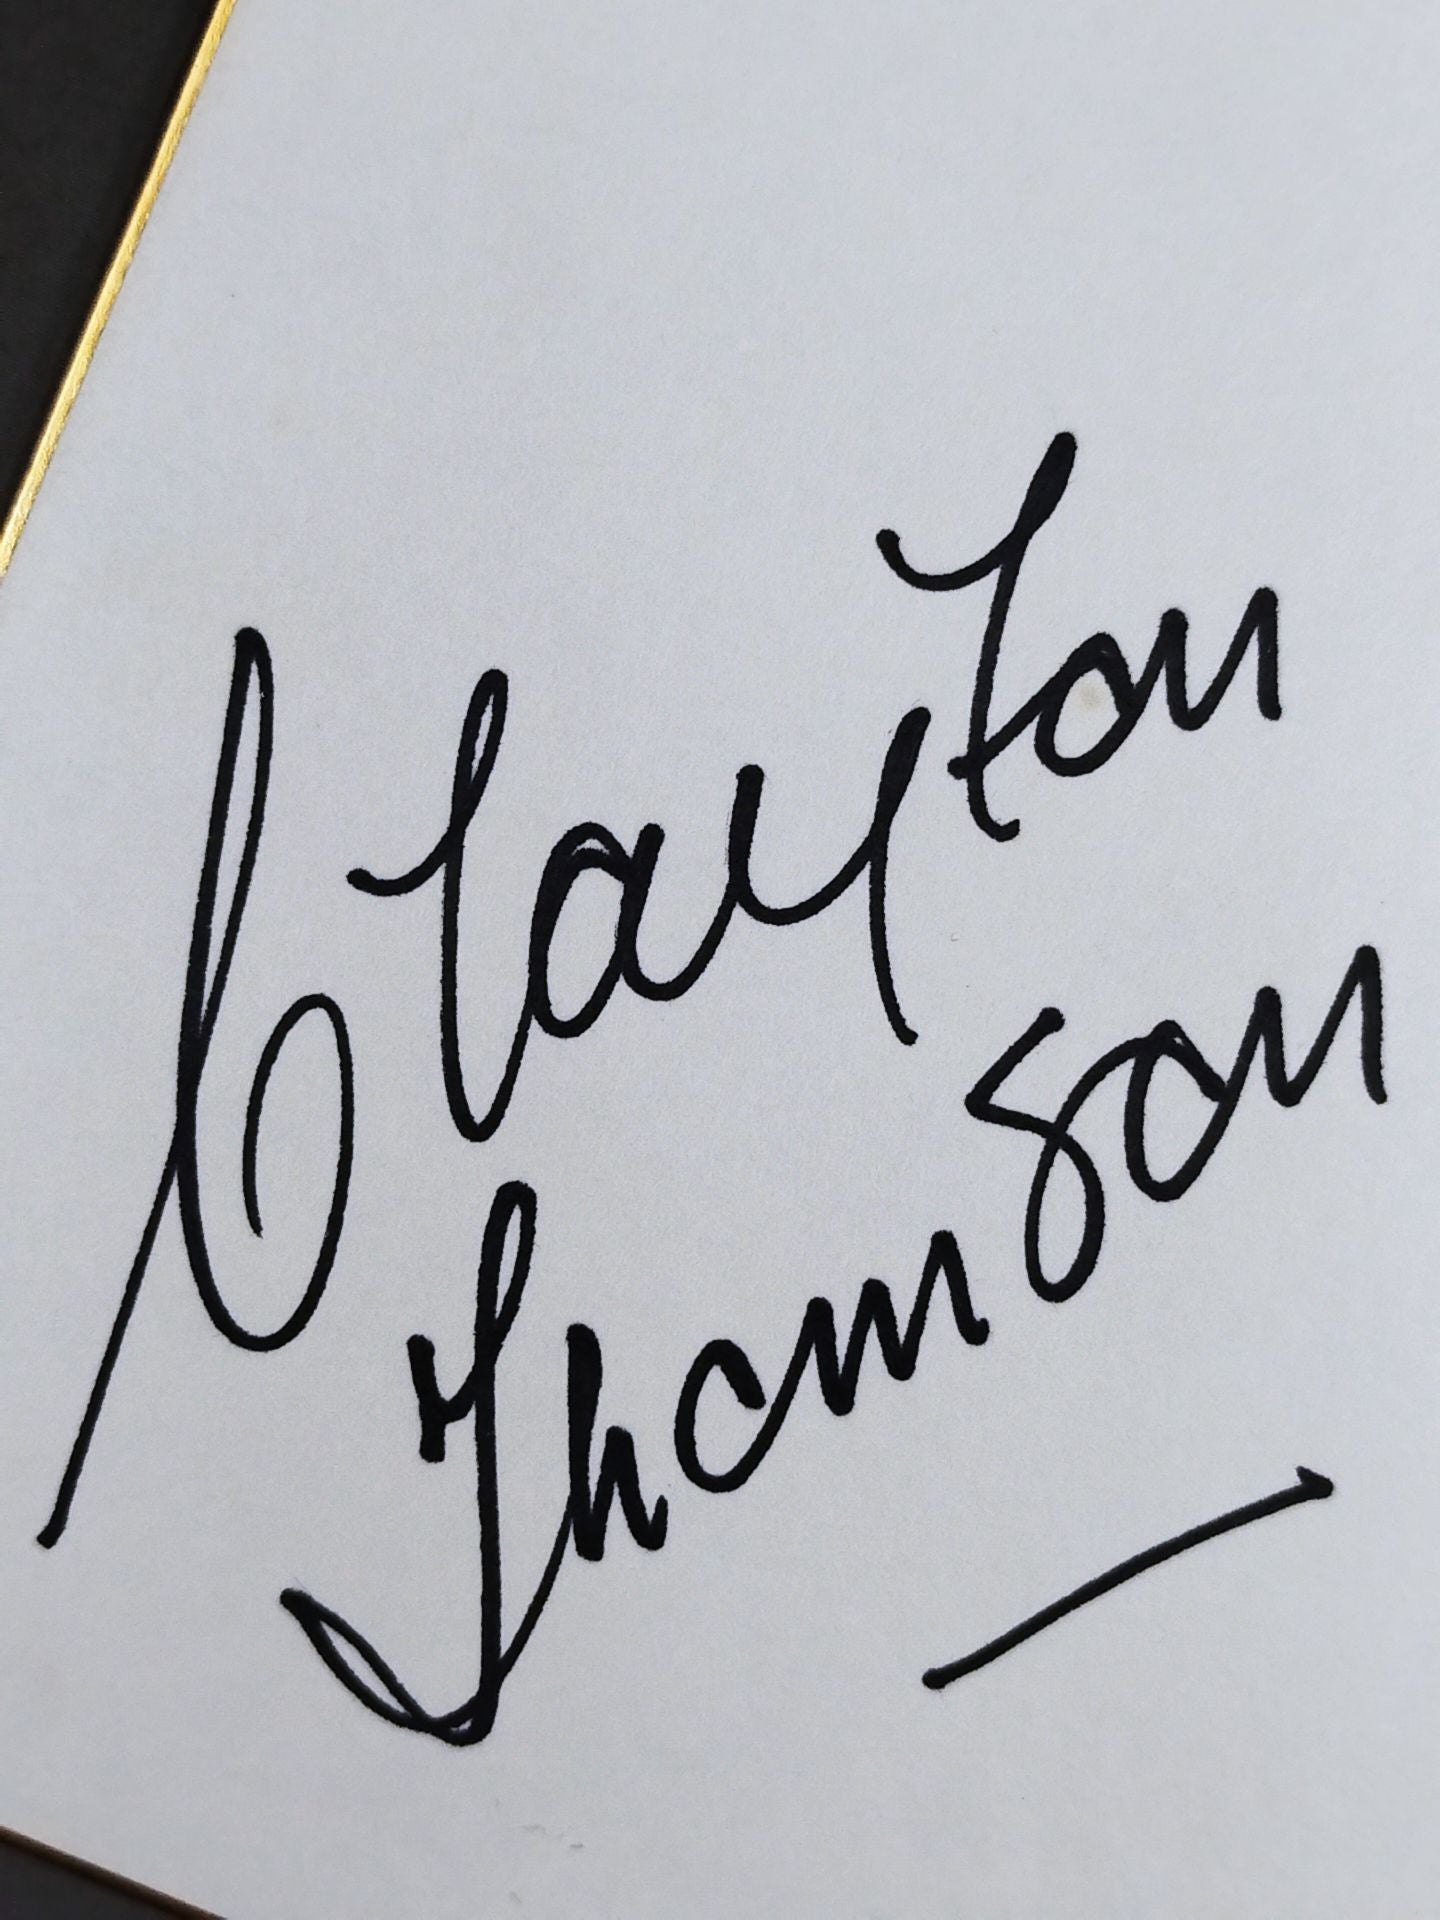 Clayton
Thomson